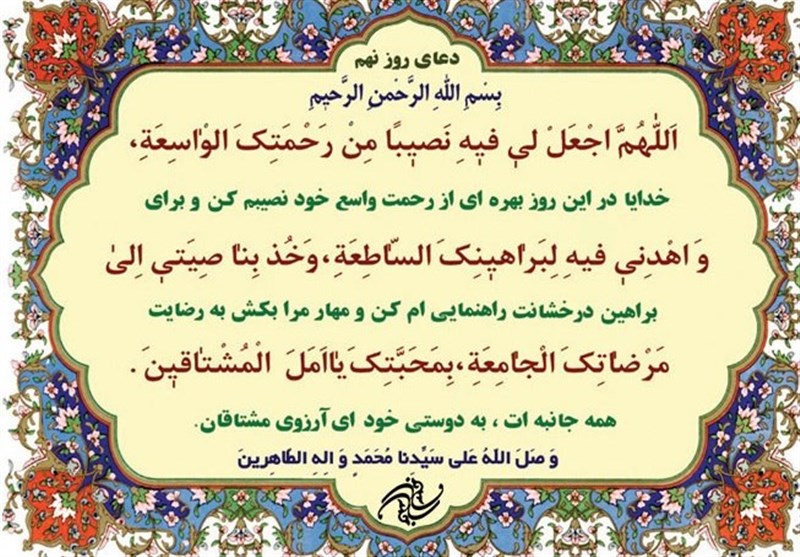 دعای روز نهم
بِسْمِ اللهِ الرَّحْمنِ الرَّحیٖمِ
اَللّٰهُمَّ اجْعَلْ لیٖ فیٖهِ نَصیٖبًا مِنْ رَحْمَتِکَ الوْاسِعَةِ،
خدایا در این روز بهره ای از رحمت واسع خود نصیبم کن و برای
وَ اهْدِنیٖ فیٖهِ لِبَراهیٖنِکَ السّاطِعَةِ، وَخُذ بِنا صِیَتیٖ اِلیٰ
براهین درخشانت راهنمایی ام کن و مهار مرا بکش به رضایت
مَرْضاتِکَ الْجامِعَةِ، بِمَحَبَّتِکَ یااَمَلَ الْمُشْتاقیٖنَ .
همه جانبه ات ، به دوستی خود ای آرزوی مشتاقان.
وَ صَلَ اللهُ عَلی سَیِّدِنا مُحَمَدٍ وَ الِهِ الطّاهِرینَ